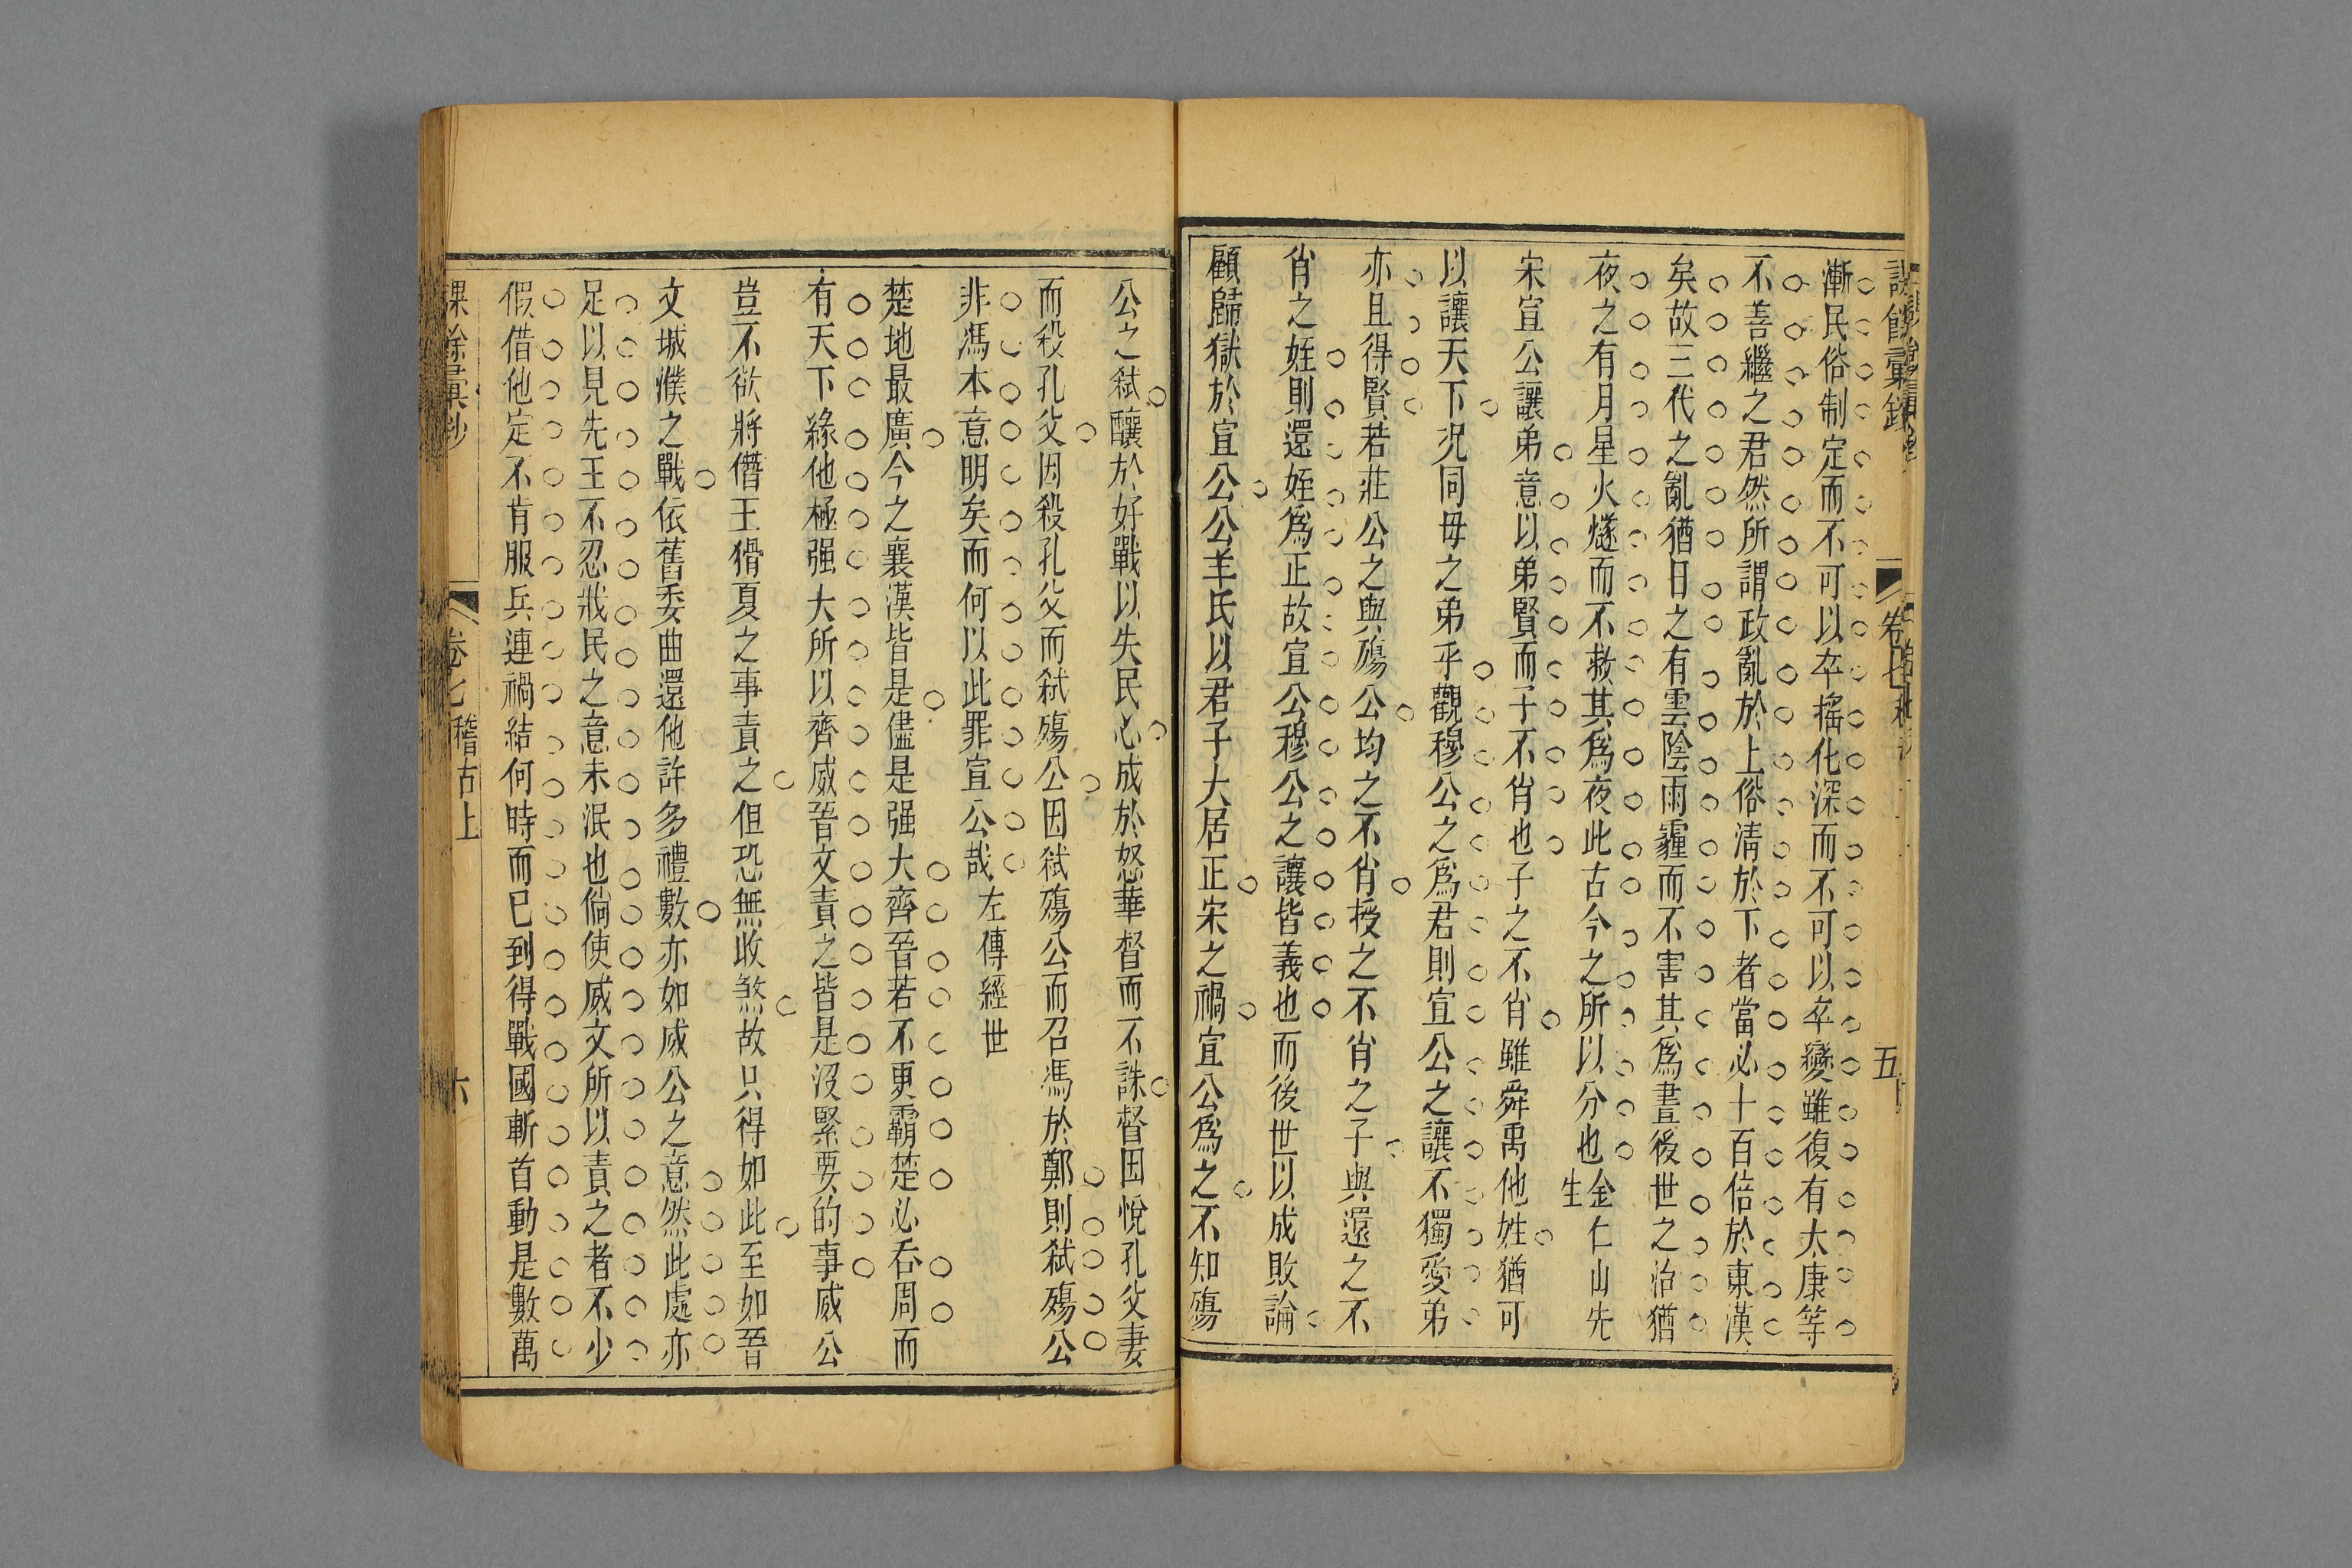 漸民俗制定而不可以卒搖化深而不可以卒變雖復有太康等
不善繼之君然所謂政亂於上俗清於下者當必十百倍於東漢
矣故三代之亂猶日之有雲陰雨霾而不害其爲晝後世之治猶
夜之有月星火燧而不救其爲夜此古今之所以分也金仁山先生
宋宣公讓弟意以弟賢而子不肖也子之不肖雖舜禹他姓猶可
以讓天下况同母之弟乎觀穆公之爲君則宣公之讓不獨愛弟
亦且得賢若莊公之與殤公均之不肖授之不肖之子與還之不
肖之姪則還姪爲正故宣公穆公之讓皆義也而後世以成敗論
顧歸獄於宣公公羊氏以君子大居正宋之禍宣公爲之不知殤
公之弑釀於好戰以失民心成於怒華督而不誅督因悅孔父妻
而殺孔父因殺孔父而弑殤公因弑殤公而召馮於鄭則弑殤公
非馮本意明矣而何以此罪宣公哉左傳經世
楚地最廣今之襄漢皆是儘是强大齊晉若不更霸楚必吞周而
有天下緣他極强大所以齊威晉文責之皆是沒緊要的事威公
豈不欲將僭王猾夏之事責之但恐無收煞故只得如此至如晉
文城濮之戰依舊委曲還他許多禮數亦如威公之意然此處亦
足以見先王不忍戕民之意未泯也倘使威文所以責之者不少
假借他定不肯服兵連禍結何時而已到得戰國斬首動是數萬
卷七 稽古上 六